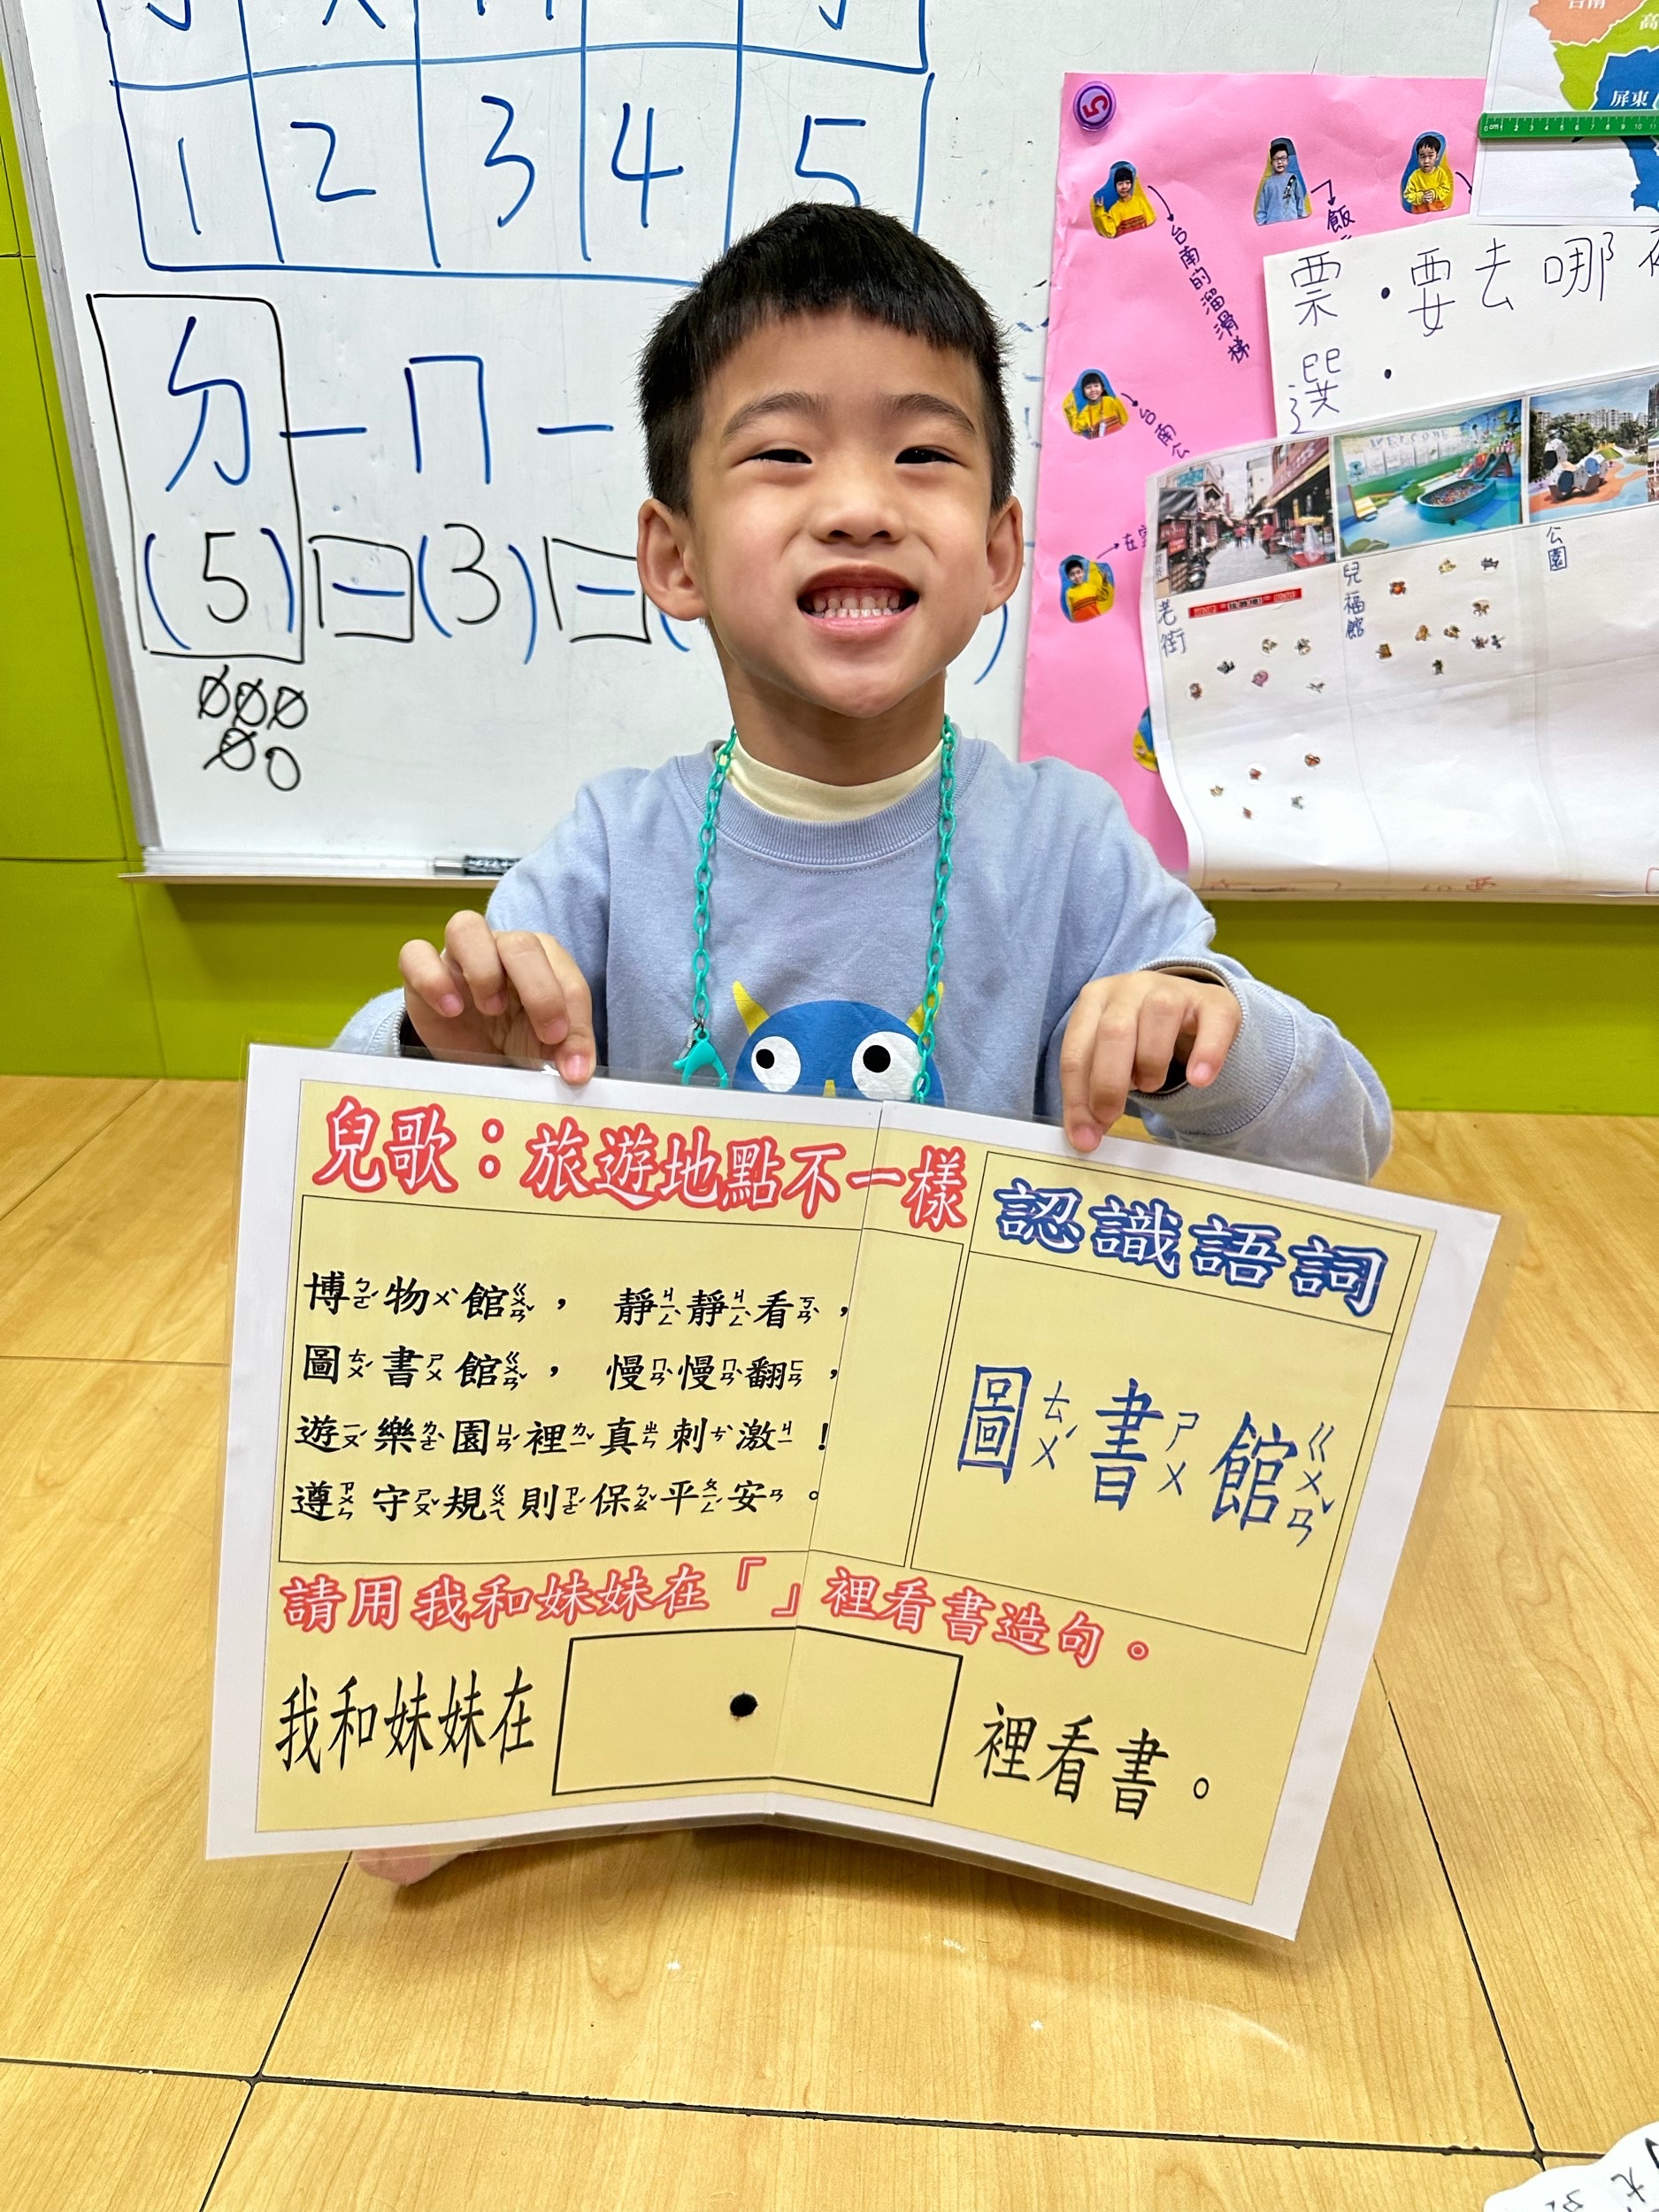 1 2 3 4 5
ㄉ一ㄇ一
(5)曰(3)曰
台南的溜滑梯
飯
台南
在
票・要去哪
選・
屏東
老街
兒福館
公園
兒歌：旅遊地點不一樣
博ㄅㄛˊ物ㄨˋ館ㄍㄨㄢˇ， 靜ㄐㄧㄥˋ靜ㄐㄧㄥˋ看ㄎㄢˋ，
圖ㄊㄨˊ書ㄕㄨ館ㄍㄨㄢˇ， 慢ㄇㄢˋ慢ㄇㄢˋ翻ㄈㄢ，
遊ㄧㄡˊ樂ㄌㄜˋ園ㄩㄢˊ裡ㄌㄧˇ真ㄓㄣ刺ㄘˋ激ㄐㄧ！
遵ㄗㄨㄣ守ㄕㄡˇ規ㄍㄨㄟ則ㄗㄜˊ保ㄅㄠˇ平ㄆㄧㄥˊ安ㄢ。
認識語詞
圖ㄊㄨˊ書ㄕㄨ館ㄍㄨㄢˇ
請用我和妹妹在「」裡看書造句。
我和妹妹在 裡看書。